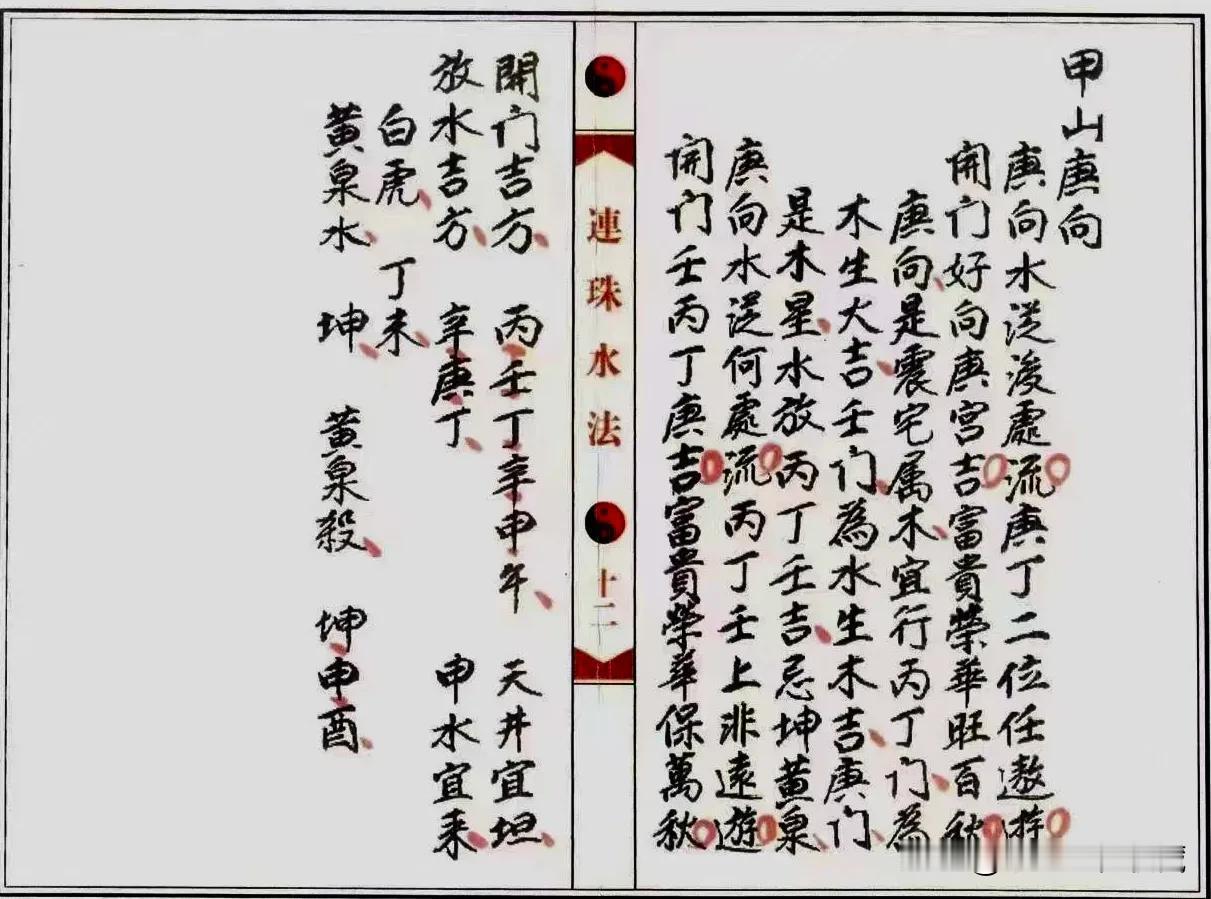 甲山庚向
庚向水從後處流庚丁二位任遨遊
開门好向庚宮吉富貴榮華旺百秋
庚向是震宅属木宜行丙丁门為
木生大吉壬门為水生木吉庚门
是木星水放丙丁壬吉忌坤黄泉
庚向水從何處流丙丁壬上非遠遊
開门壬丙丁庚吉富貴榮華保萬秋
連珠水法
十二
開门吉方 丙壬丁辛申午 天井宜坦
放水吉方 辛庚丁 申水宜来
白虎 丁未
黄泉水 坤 黄泉殺 坤申酉